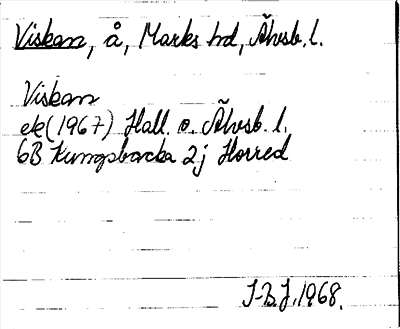 Viskan, å, Marks hd, Älvsb. l.
Viskan
ek(1967) Hall. o. Älvsb. l.
6B Kungsbacka 2j Horred
J-B.J. 1968.